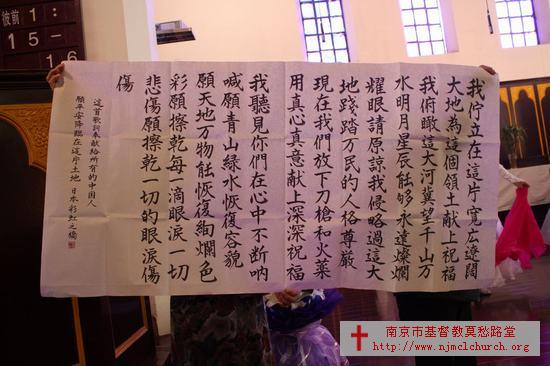 彼前 1:
15-
16
我佇立在這片寬広遼闊
大地為這個領土献上祝福
我俯瞰這大河冀望千山万
水明月星辰能够永遠燦爛
耀眼請原諒我侵略過這大
地践踏万民的人格尊厳
現在我們放下刀槍和火薬
用真心真意献上深深祝福
我聽見你們在心中不断吶
喊願青山緑水恢復容貌
願天地万物能恢復絢爛色
彩願擦乾每一滴眼涙一切
悲傷願擦乾一切的眼涙傷
傷
這首歌詞奉献給所有的中国人
願平安降臨在這片土地 日本彩虹之橋
南京市基督教莫愁路堂
http://www.njmclchurch.org